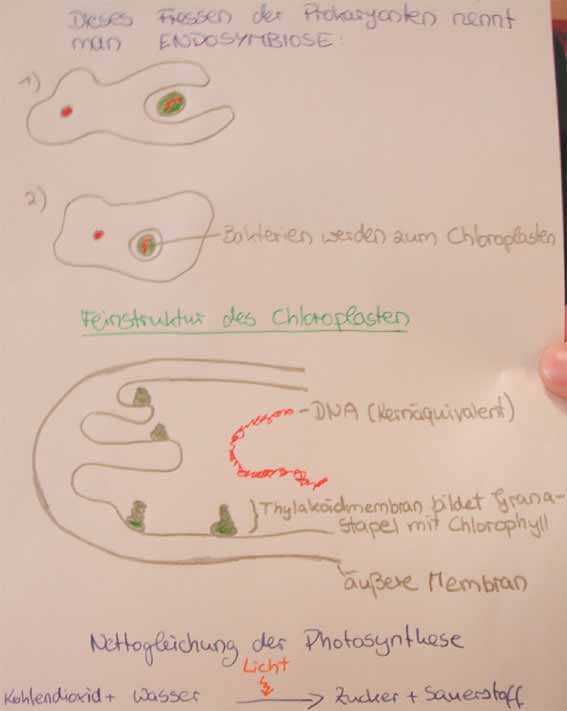 Dieses Fressen der Prokaryonten nennt
man ENDOSYMBIOSE:
1)
2)
Bakterien werden zum Chloroplasten
Feinstruktur des Chloroplasten
DNA (Kernäquivalent)
Thylakoidmembran bildet Grana-
stapel mit Chlorophyll
äußere Membran
Nettogleichung der Photosynthese
Licht
Kohlendioxid + Wasser → Zucker + Sauerstoff